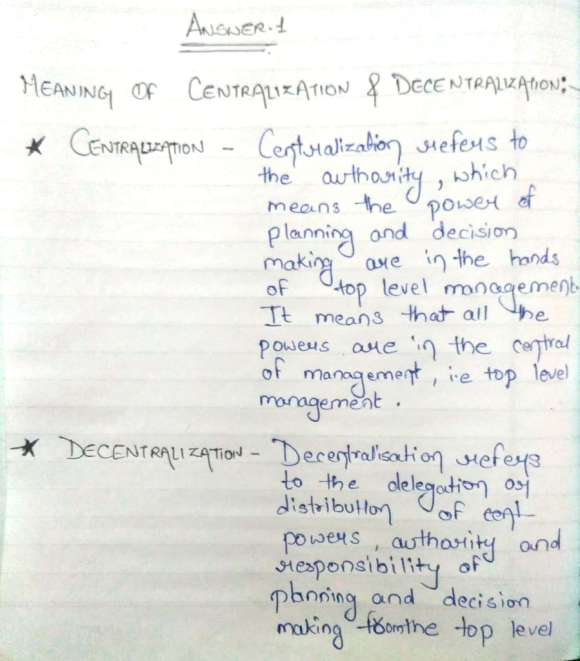 ANSWER.1
MEANING OF CENTRALIZATION & DECENTRALIZATION:-
★ CENTRALIZATION - Centralization refers to
the authority, which
means the power of
planning and decision
making are in the hands
of top level management.
It means that all the
powers are in the central
of management, i.e top level
management.
★ DECENTRALIZATION - Decentralisation refers
to the delegation or
distribution of
powers, authority and
responsibility of
planning and decision
making from the top level